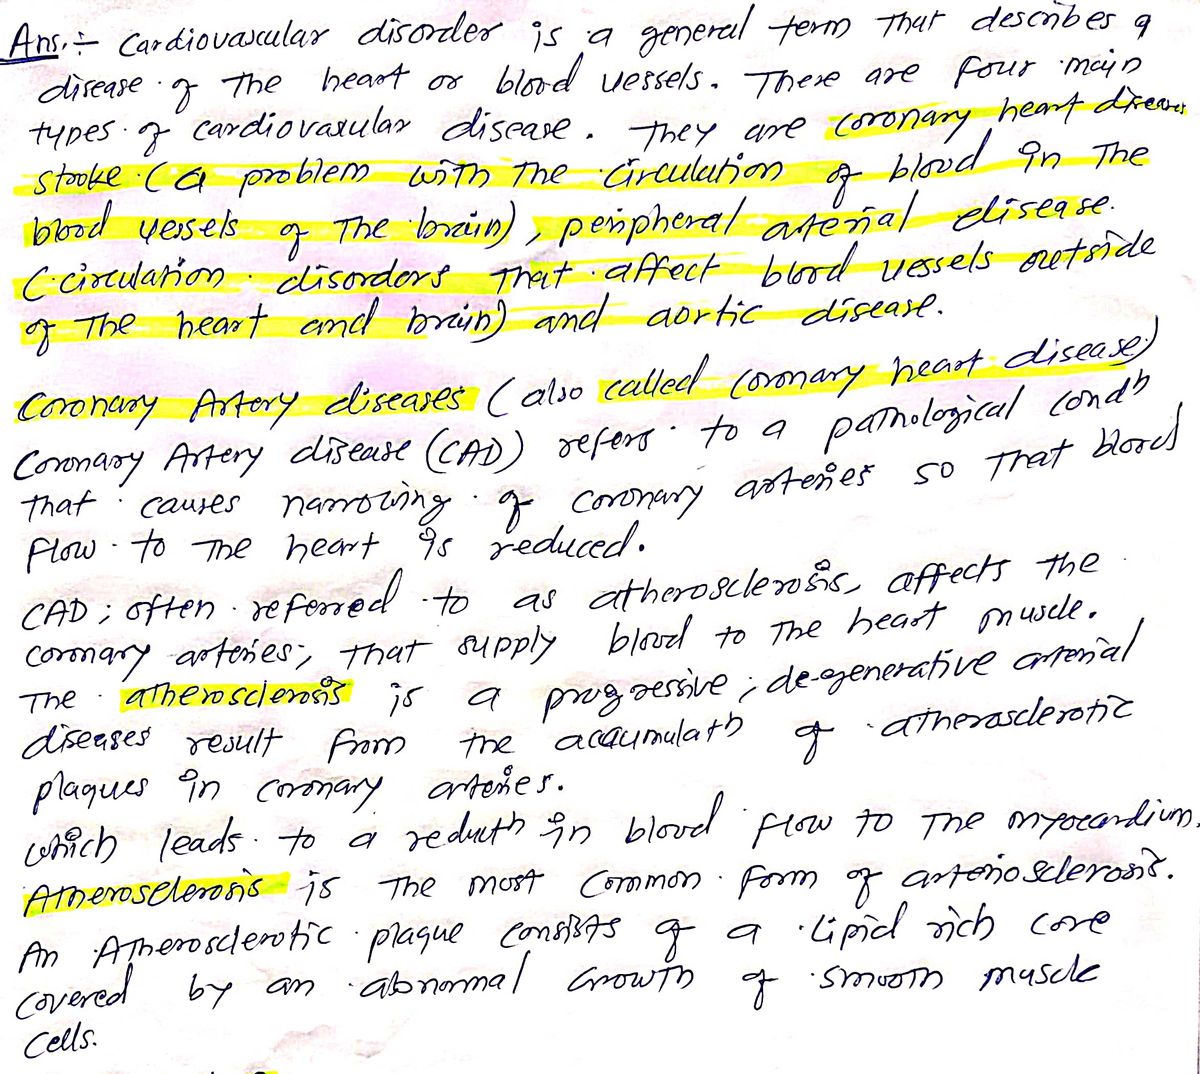 Ans.:- Cardiovascular disorder is a general term that describes a
disease of the heart or blood vessels. There are four main
types of cardiovascular disease. They are coronary heart diseases
stroke (a problem with the circulation of blood in the
blood vessels of the brain), peripheral arterial disease.
(circulation disorders that affect blood vessels outside
of the heart and brain) and aortic disease.
Coronary Artery diseases (also called coronary heart disease)
Coronary Artery disease (CAD) refers to a pathological condn
that causes narrowing of coronary arteries so that blood
flow to the heart is reduced.
CAD; often referred to as atherosclerosis, affects the
coronary arteries, that supply blood to the heart muscle.
The atherosclerosis is a progressive, de-generative arterial
diseases result from the accumulatn of atherosclerotic
plaques in coronary arteries.
which leads to a reductn in blood flow to the myocardium.
Atherosclerosis is the most common form of arteriosclerosis.
An Atherosclerotic plaque consists of a lipid rich core
covered by an abnormal Growth of smooth muscle
cells.